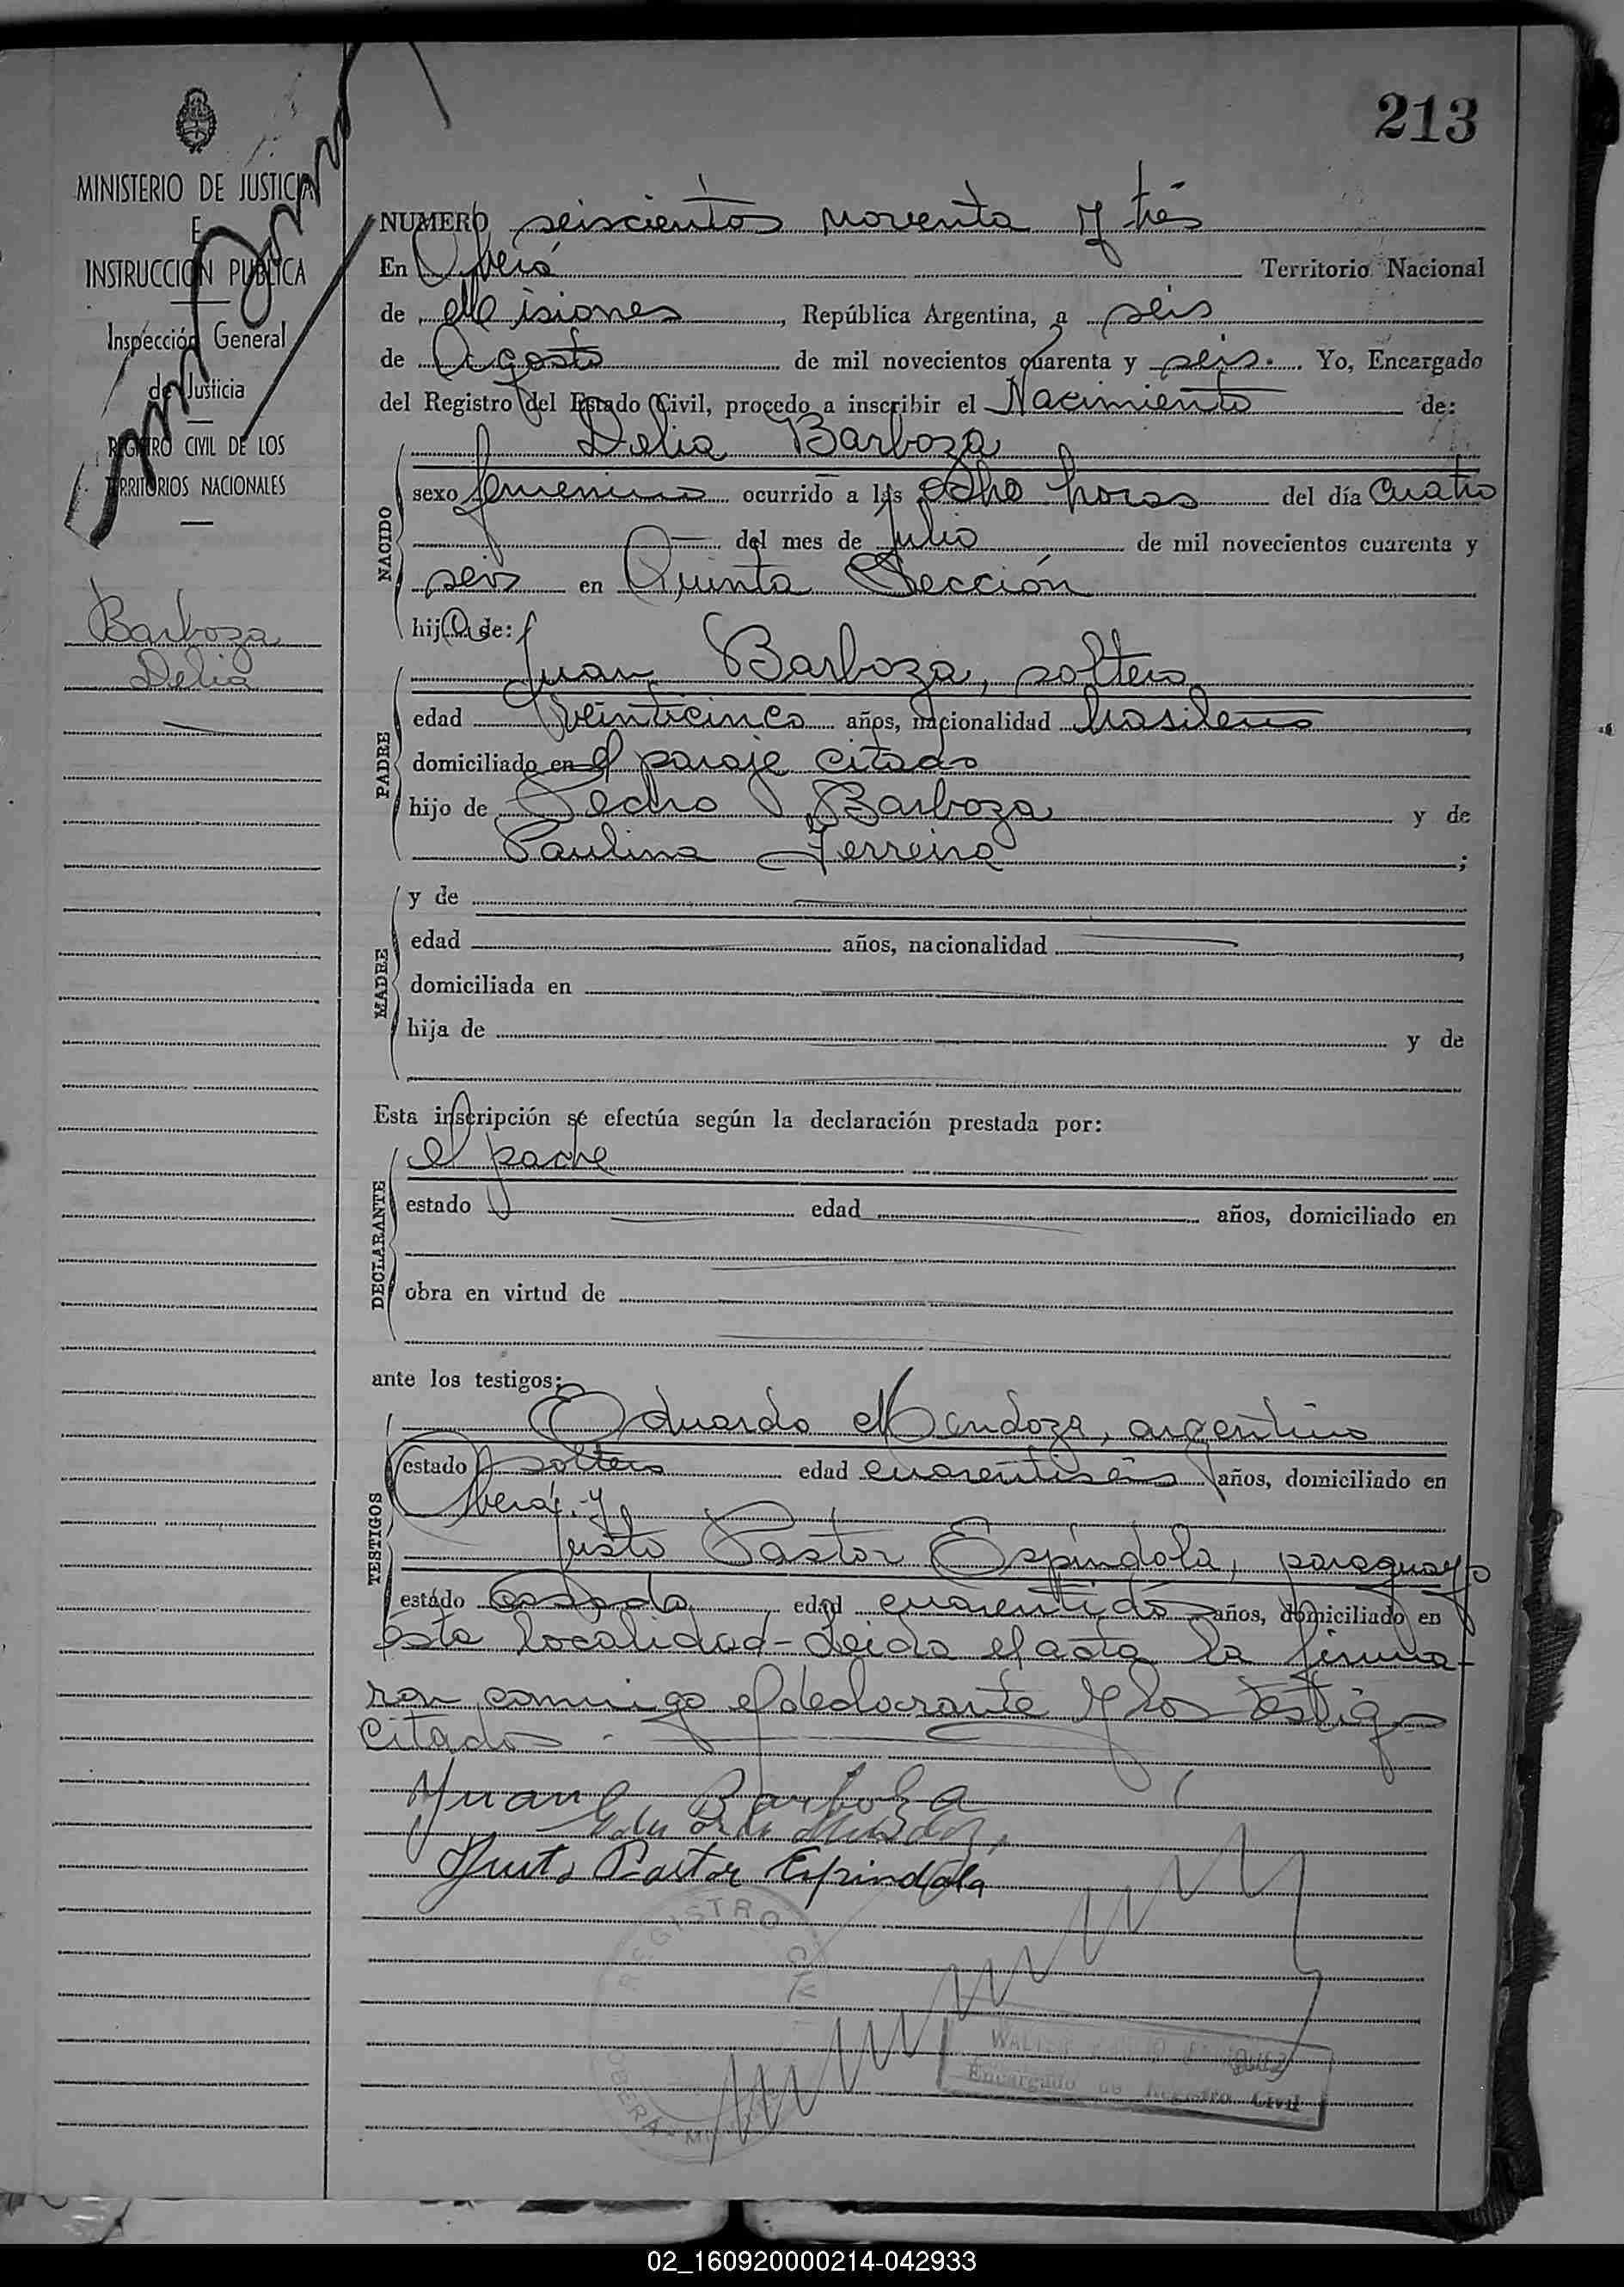 213
MINISTERIO DE JUSTICIA
E
INSTRUCCION PUBLICA
Inspección General
de Justicia
REGISTRO CIVIL DE LOS
TERRITORIOS NACIONALES
Barboza
Delia
NUMERO seiscientos noventa y tres
En Oberá Territorio Nacional
de Misiones, República Argentina, a seis
de Agosto de mil novecientos cuarenta y seis. Yo, Encargado
del Registro del Estado Civil, procedo a inscribir el Nacimiento de:
Delia Barboza
NACIDO
sexo femenino ocurrido a las ocho horas del día cuatro
del mes de julio de mil novecientos cuarenta y
seis en Quinta Sección
hija de:
Juan Barboza, soltero
PADRE
edad veinticinco años, nacionalidad brasileno
domiciliado en el paraje citado
hijo de Pedro Barboza y de
Paulina Ferreira;
MADRE
y de
edad años, nacionalidad
domiciliada en
hija de y de
Esta inscripción se efectúa según la declaración prestada por:
el padre
DECLARANTE
estado edad años, domiciliado en
obra en virtud de
ante los testigos:
Eduardo Mendoza, argentino
TESTIGOS
estado soltero edad cuarentiseis años, domiciliado en
Oberá, y
Justo Pastor Espíndola, paraguayo
estado casado edad cuarentidos años, domiciliado en
ésta localidad-Leida el acta la firma-
ron conmigo el declarante y los testigos
citados.
Juan Barboza
Eduardo Mendoza
Justo Pastor Espindola
REGISTRO CIVIL
OBERA - MISIONES
WALTER
Encargado de Registro Civil
02_160920000214-042933